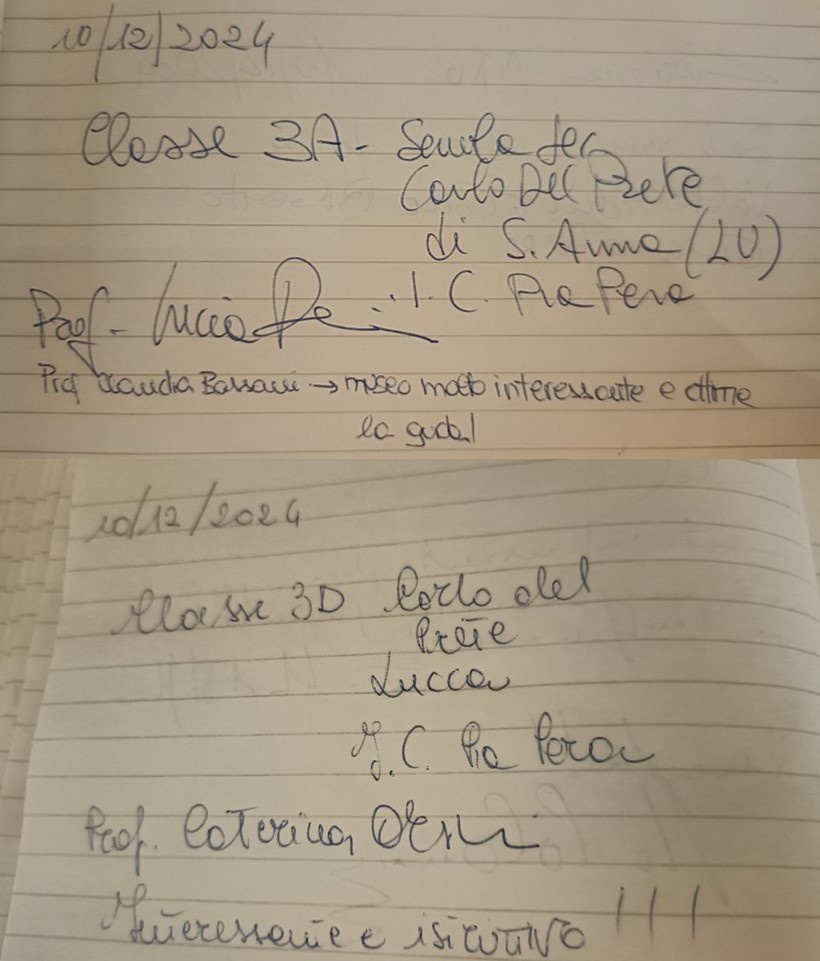 10/12/2024
Classe 3A - Scuola sec
Carlo Del Prete
di S. Anna (LU)
I. C. Pia Pera
Prof. Lucia
Prof Claudia Bassani → museo molto interessante e ottime
la guida!
10/12/2024
Classe 3D Carlo del
Prete
Lucca
I.C. Pia Pera
Prof. Caterina
Interessante e istruttivo !!!